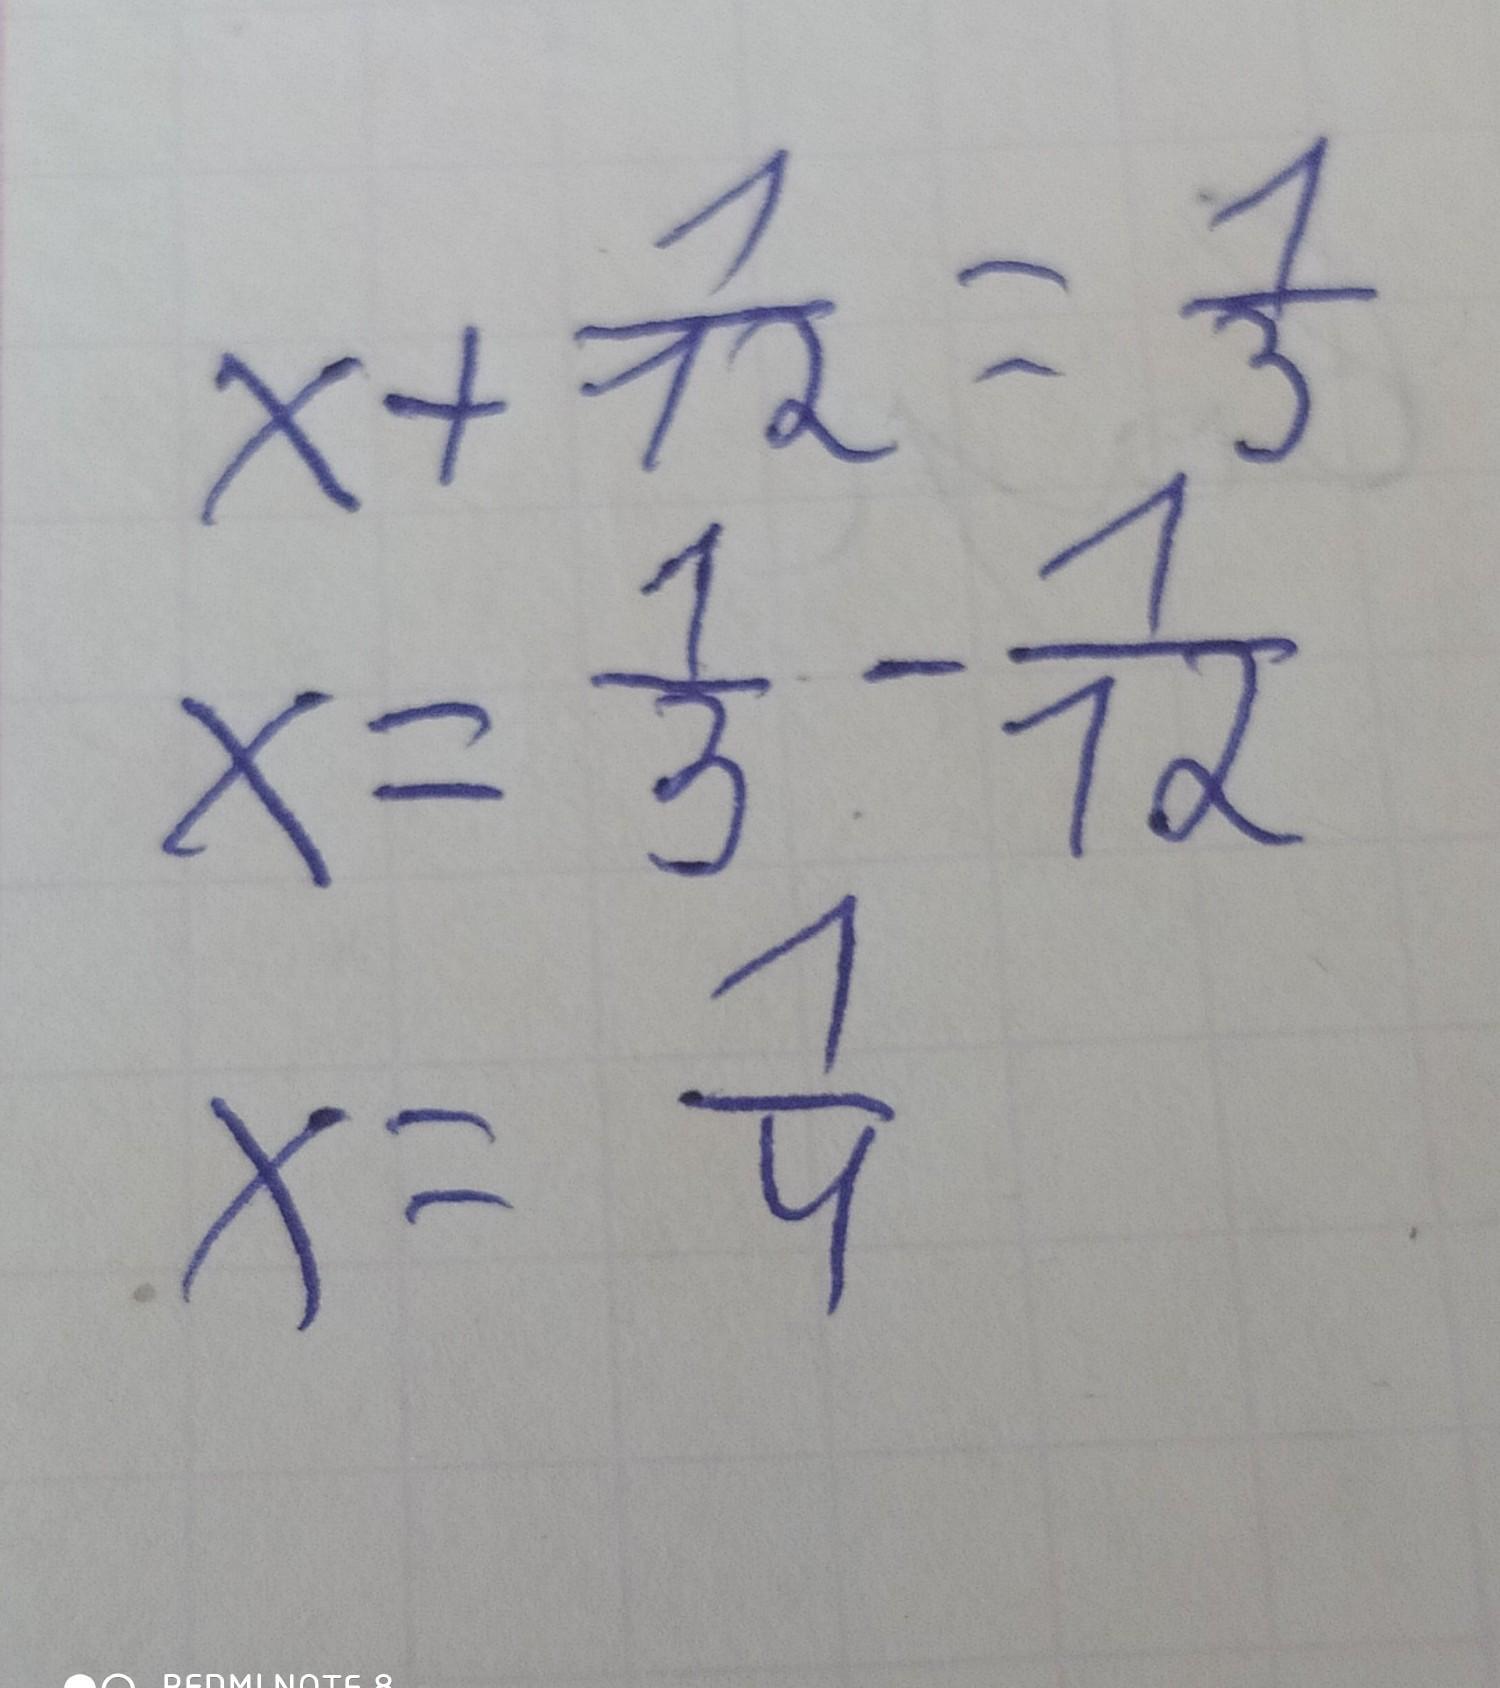 x + 1/12 = 1/3
x = 1/3 - 1/12
x = 1/4
REDMI NOTE 8